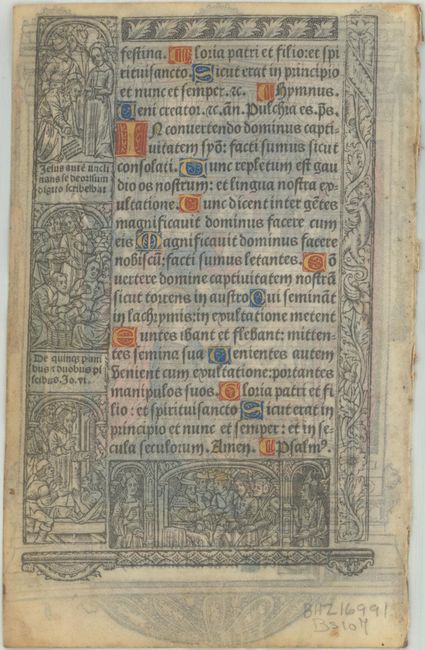 festina. Gloria patri et filio: et spi
rituisancto. Sicut erat in principio
et nunc et semper. ⁊c. Hymnus.
Veni creator. ⁊c. añ. Pulchra es. p̃s.
IN convertendo dominus capti
vitatem syõ: facti sumus sicut
consolati. Tunc repletum est gau
dio os nostrum: et lingua nostra ex
ultatione. Tunc dicent inter gẽtes
magnificavit dominus facere cum
eis Magnificavit dominus facere
nobiscũ: facti sumus letantes. Cõ
vertere domine captivitatem nostrã
sicut torrens in austro Qui seminãt
in lachrymis: in exultatione metent
Euntes ibant et flebant: mitten-
tes semina sua Venientes autem
venient cum exultatione: portantes
manipulos suos. Gloria patri et fi
lio: et spirituisancto Sicut erat in
principio et nunc et semper: et in se
cula seculorum. Amen. Psalmꝰ.
Jesus autẽ incli
nans se deorsum
digito scribebat
De quinqꝫ pani
bus ⁊ duobus pi
scibus. Jo. vi.
BHZ16991